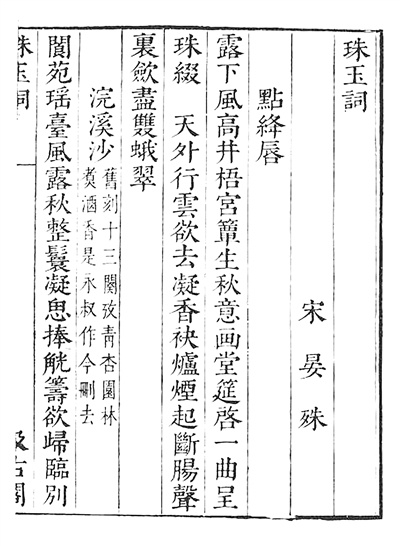 珠玉詞
宋晏殊
點絳唇
露下風高井梧宮簟生秋意画堂筵啓一曲呈
珠綴　天外行雲欲去凝香袂爐煙起斷腸聲
裏歛盡雙蛾翠
浣溪沙
舊刻十三闋攷青杏園林
煑酒香是永叔作今刪去
閬苑瑶臺風露秋整鬟凝思捧觥籌欲歸臨別
珠玉詞
汲古閣